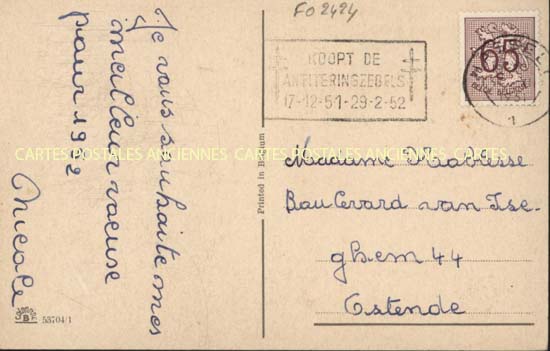 FO 2424
Je vous souhaite mes
meilleur vœuse
pour 1952
Nicole
KOOPT DE
ANTITERINGZEGELS
17-12-51-29-2-52
65
CARTES POSTALES ANCIENNES CARTES POSTALES ANCIENNES CARTES
Printed in Belgium
Madame
Boulevard van Ise-
ghem 44
Ostende
B
53704/1